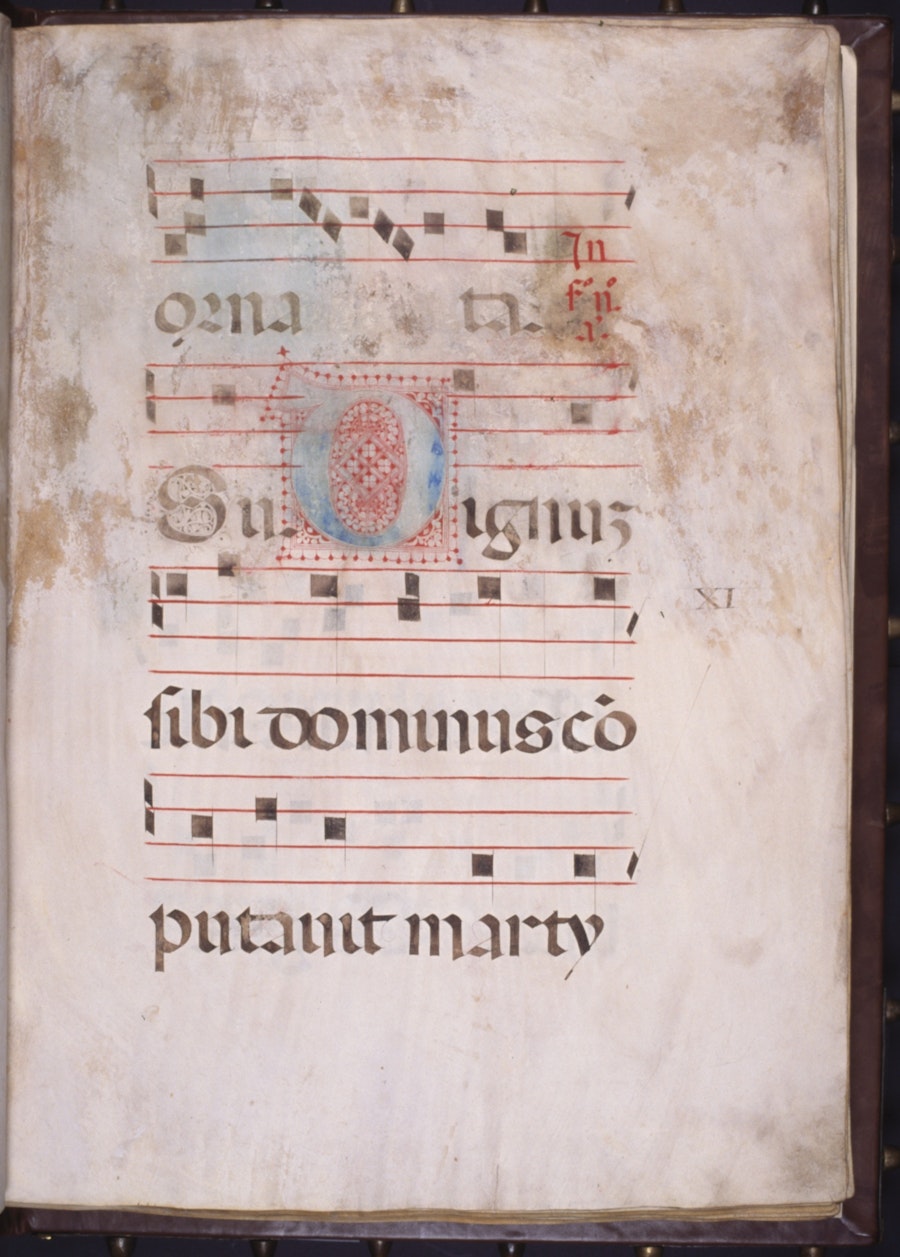 ornata. In
f° n°.
a°.
Su. Dignuz
XI
sibi dominus cō
putauit marty